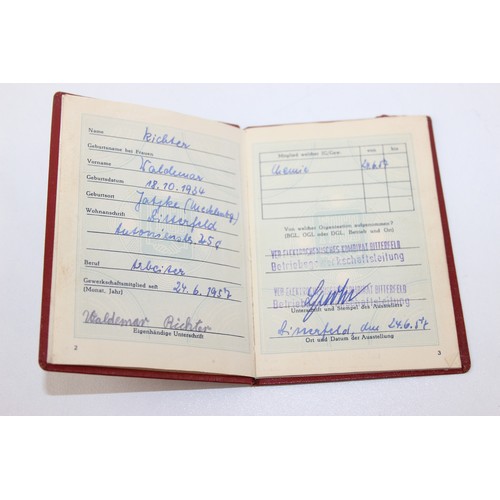 Name Richter
Geburtsname bei Frauen
Vorname Waldemar
Geburtsdatum 18.10.1934
Geburtsort Jatzke (Mecklenbg)
Wohnanschrift Bitterfeld
Antonienstr. 25c
Beruf Arbeiter
Gewerkschaftsmitglied seit 24.6.1957
(Monat, Jahr)
Waldemar Richter
Eigenhändige Unterschrift
2
Mitglied welcher IG/Gew. von bis
Chemie
Von welcher Organisation aufgenommen?
(BGL, OGL oder DGL, Betrieb und Ort)
VEB ELEKTROCHEMISCHES KOMBINAT BITTERFELD
Betriebsgewerkschaftsleitung
VEB ELEKTROCHEMISCHES KOMBINAT BITTERFELD
Betriebsgewerkschaftsleitung
Unterschrift und Stempel des Ausstellers
Bitterfeld, den 24.6.57
Ort und Datum der Ausstellung
3